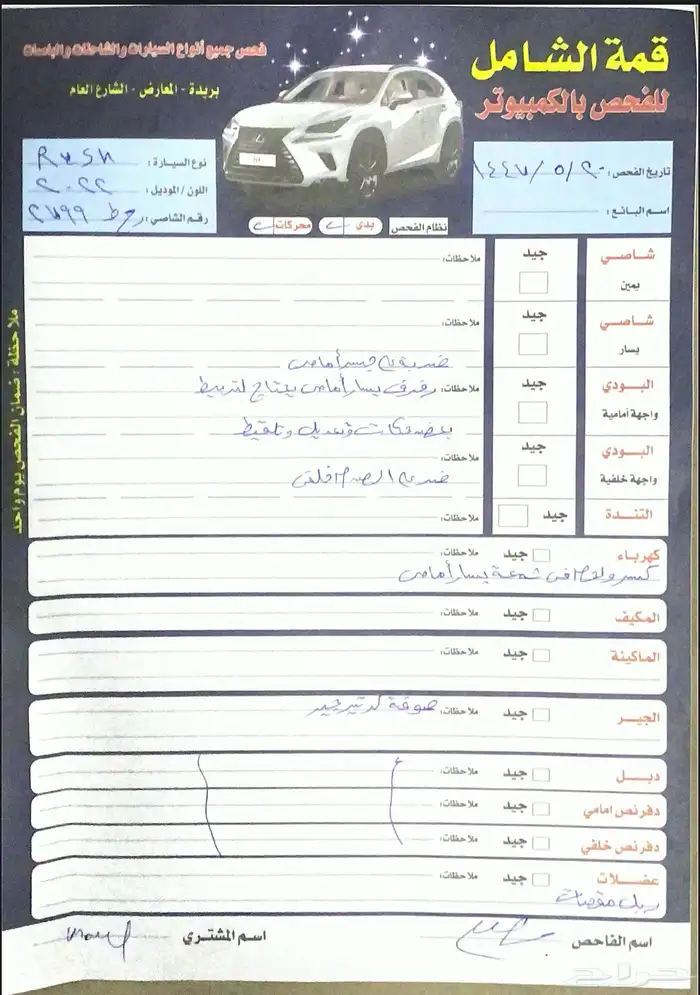 قمة الشامل
للفحص بالكمبيوتر
فحص جميع أنواع السيارات والشاحنات والباصات
بريدة - المعارض - الشارع العام
تاريخ الفحص: ١٤٤٧/٥/٢٠
اسم البائع:
نوع السيارة: RUSH
اللون / الموديل: ٢٠٢٢
رقم الشاصي: ٢٧٩٩
نظام الفحص
بدي
محركات
شاصي
يمين
جيد
ملاحظات:
شاصي
يسار
جيد
ملاحظات:
ضربة جسر أمامي
البودي
واجهة أمامية
جيد
ملاحظات: رفرف يسار أمامي يحتاج تربيط
بعض فكات وتعديل وتلقيط
البودي
واجهة خلفية
جيد
ملاحظات:
ضربة الصدام خلفي
التندة
جيد
ملاحظات:
كهرباء
جيد
ملاحظات:
كسر ولحام في شمعة يسار أمامي
المكيف
جيد
ملاحظات:
الماكينة
جيد
ملاحظات:
الجير
جيد
ملاحظات: صوفة كرتير جير
دبل
جيد
ملاحظات:
دفرنص امامي
جيد
ملاحظات:
دفرنص خلفي
جيد
ملاحظات:
عضلات
جيد
ملاحظات:
ربل مقصات
اسم الفاحص
اسم المشتري
ملاحظة : ضمان الفحص يوم واحد
حراج